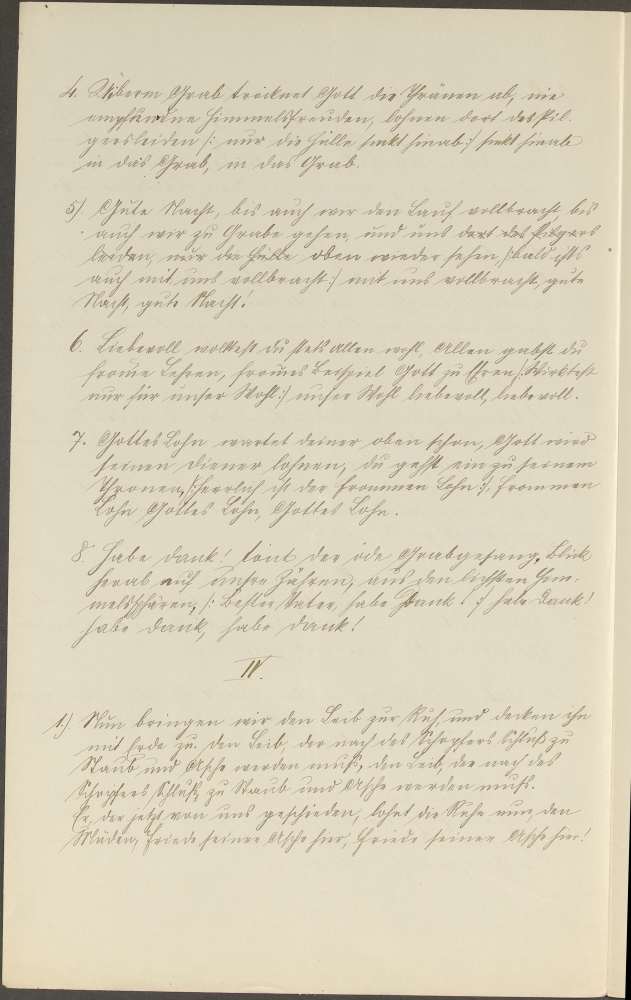 4. Überm Grab trocknet Gott die Thränen ab, nie
empfundne Himmelsfreuden, lohnen dort des Pil-
gersleiden /: nur die Hülle sinkt hinab :/ sinkt hinab
in das Grab, in das Grab.
5). Gute Nacht, bis auch wir den Lauf vollbracht, bis
auch wir zu Grabe gehen, und uns dort des Pilgers
leiden, nur die Hülle oben wieder sehen, /: bald ists
auch mit uns vollbracht :/ mit uns vollbracht, gute
Nacht, gute Nacht!
6. Liebevoll wolltest du stets allen wohl, Allen gabst du
fromme Lehren, frommes Beispiel Gott zu Ehren /: Wirktest
nur für unser Wohl :/ unser Wohl liebevoll, liebevoll.
7. Gottes Lohn wartet deiner oben schon, Gott wird
seinen Diener lohnen, du gehst ein zu seinem
Thronen, /: herrlich ist der frommen Lohn :/, frommen
Lohn Gottes Lohn, Gottes Lohn.
8. Habe Dank! tönt der öde Grabgesang, Blick
herab auf unsre Zähren, aus den lichten Him-
melssphären, /: Bester Vater, habe Dank! :/ habe Dank!
habe Dank, habe Dank!
IV.
1.) Nun bringen wir den Leib zur Ruh, und decken ihn
mit Erde zu. Den Leib, der nach des Schöpfers Schluß zu
Staub und Asche werden muß, den Leib, der nach des
Schöpfers Schluß, zu Staub und Asche werden muß.
Er, der jetzt von uns geschieden, lohnt die Ruhe nun, den
Müden, Friede seiner Asche hier, Friede seiner Asche hier!